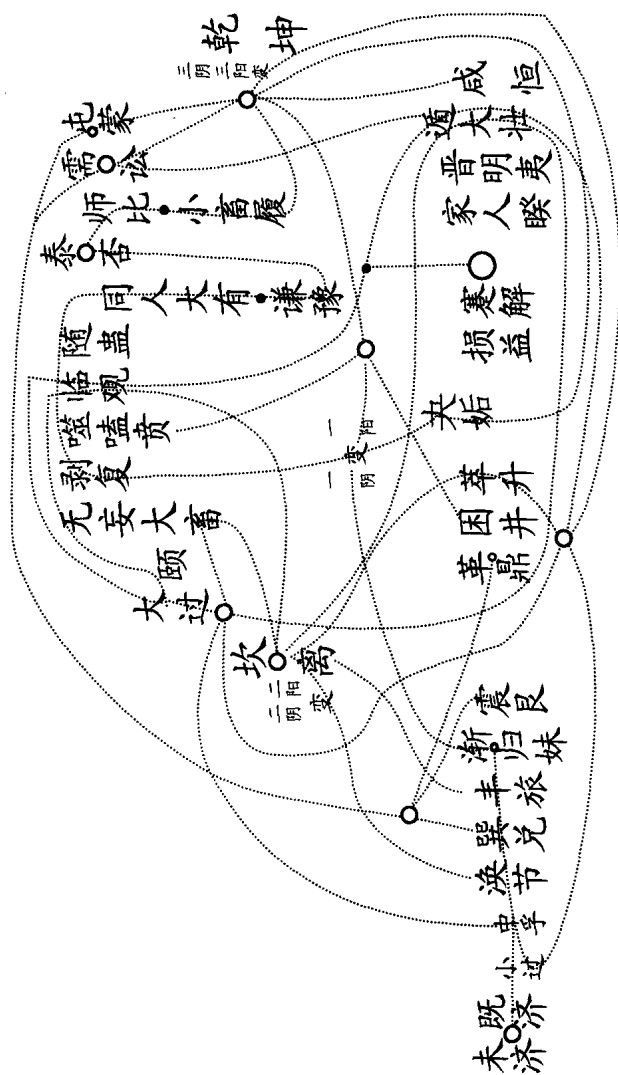 乾 坤
三阴三阳变
屯蒙
需讼
师比 小畜履
泰否
同人大有 谦豫
随蛊
临观
噬嗑贲
剥复
无妄大畜
颐
大过
坎 离
二阳
二阴
变
咸 恒
遁大壮
晋明夷
家人睽
蹇解
损益
夬姤
一 阳
变
一 阴
萃升
困井
革鼎
震艮
渐归妹
丰旅
巽兑
涣节
中孚
小过
既济
未济